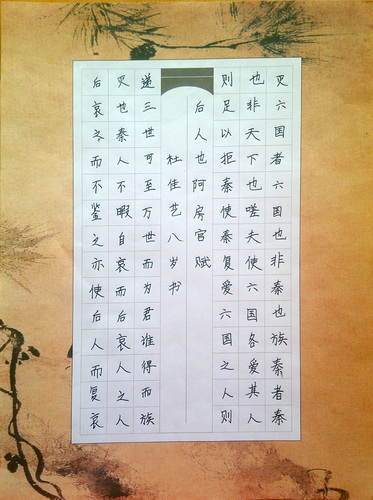 灭六国者六国也非秦也族秦者秦
也非天下也嗟夫使六国各爱其人
则足以拒秦使秦复爱六国之人则
递三世可至万世而为君谁得而族
灭也秦人不暇自哀而后哀人之人
后哀之而不鉴之亦使后人而复哀
后人也阿房宫赋
杜佳艺八岁书